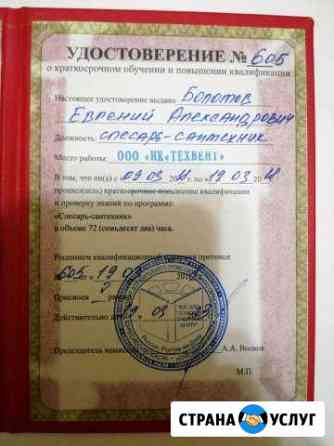 УДОСТОВЕРЕНИЕ № 605
о краткосрочном обучении и повышении квалификации
Настоящее удостоверение выдано Болотов
Евгений Александрович
Должность: слесарь-сантехник
Место работы: ООО "ИК"ТЕХВЕНТ"
В том, что он(а) с 09 03 20 г. по «19 03 20
прошел(ла) краткосрочное повышение квалификации
и проверку знаний по программе:
«Слесарь-сантехник»
в объеме 72 (семьдесят два) часа.
Решением квалификационной протокол
605. 19.0
Присвоен разряд
Действительно до 19 03
Председатель А.А. Волков
М.П.
СТРАНА УСЛУГ